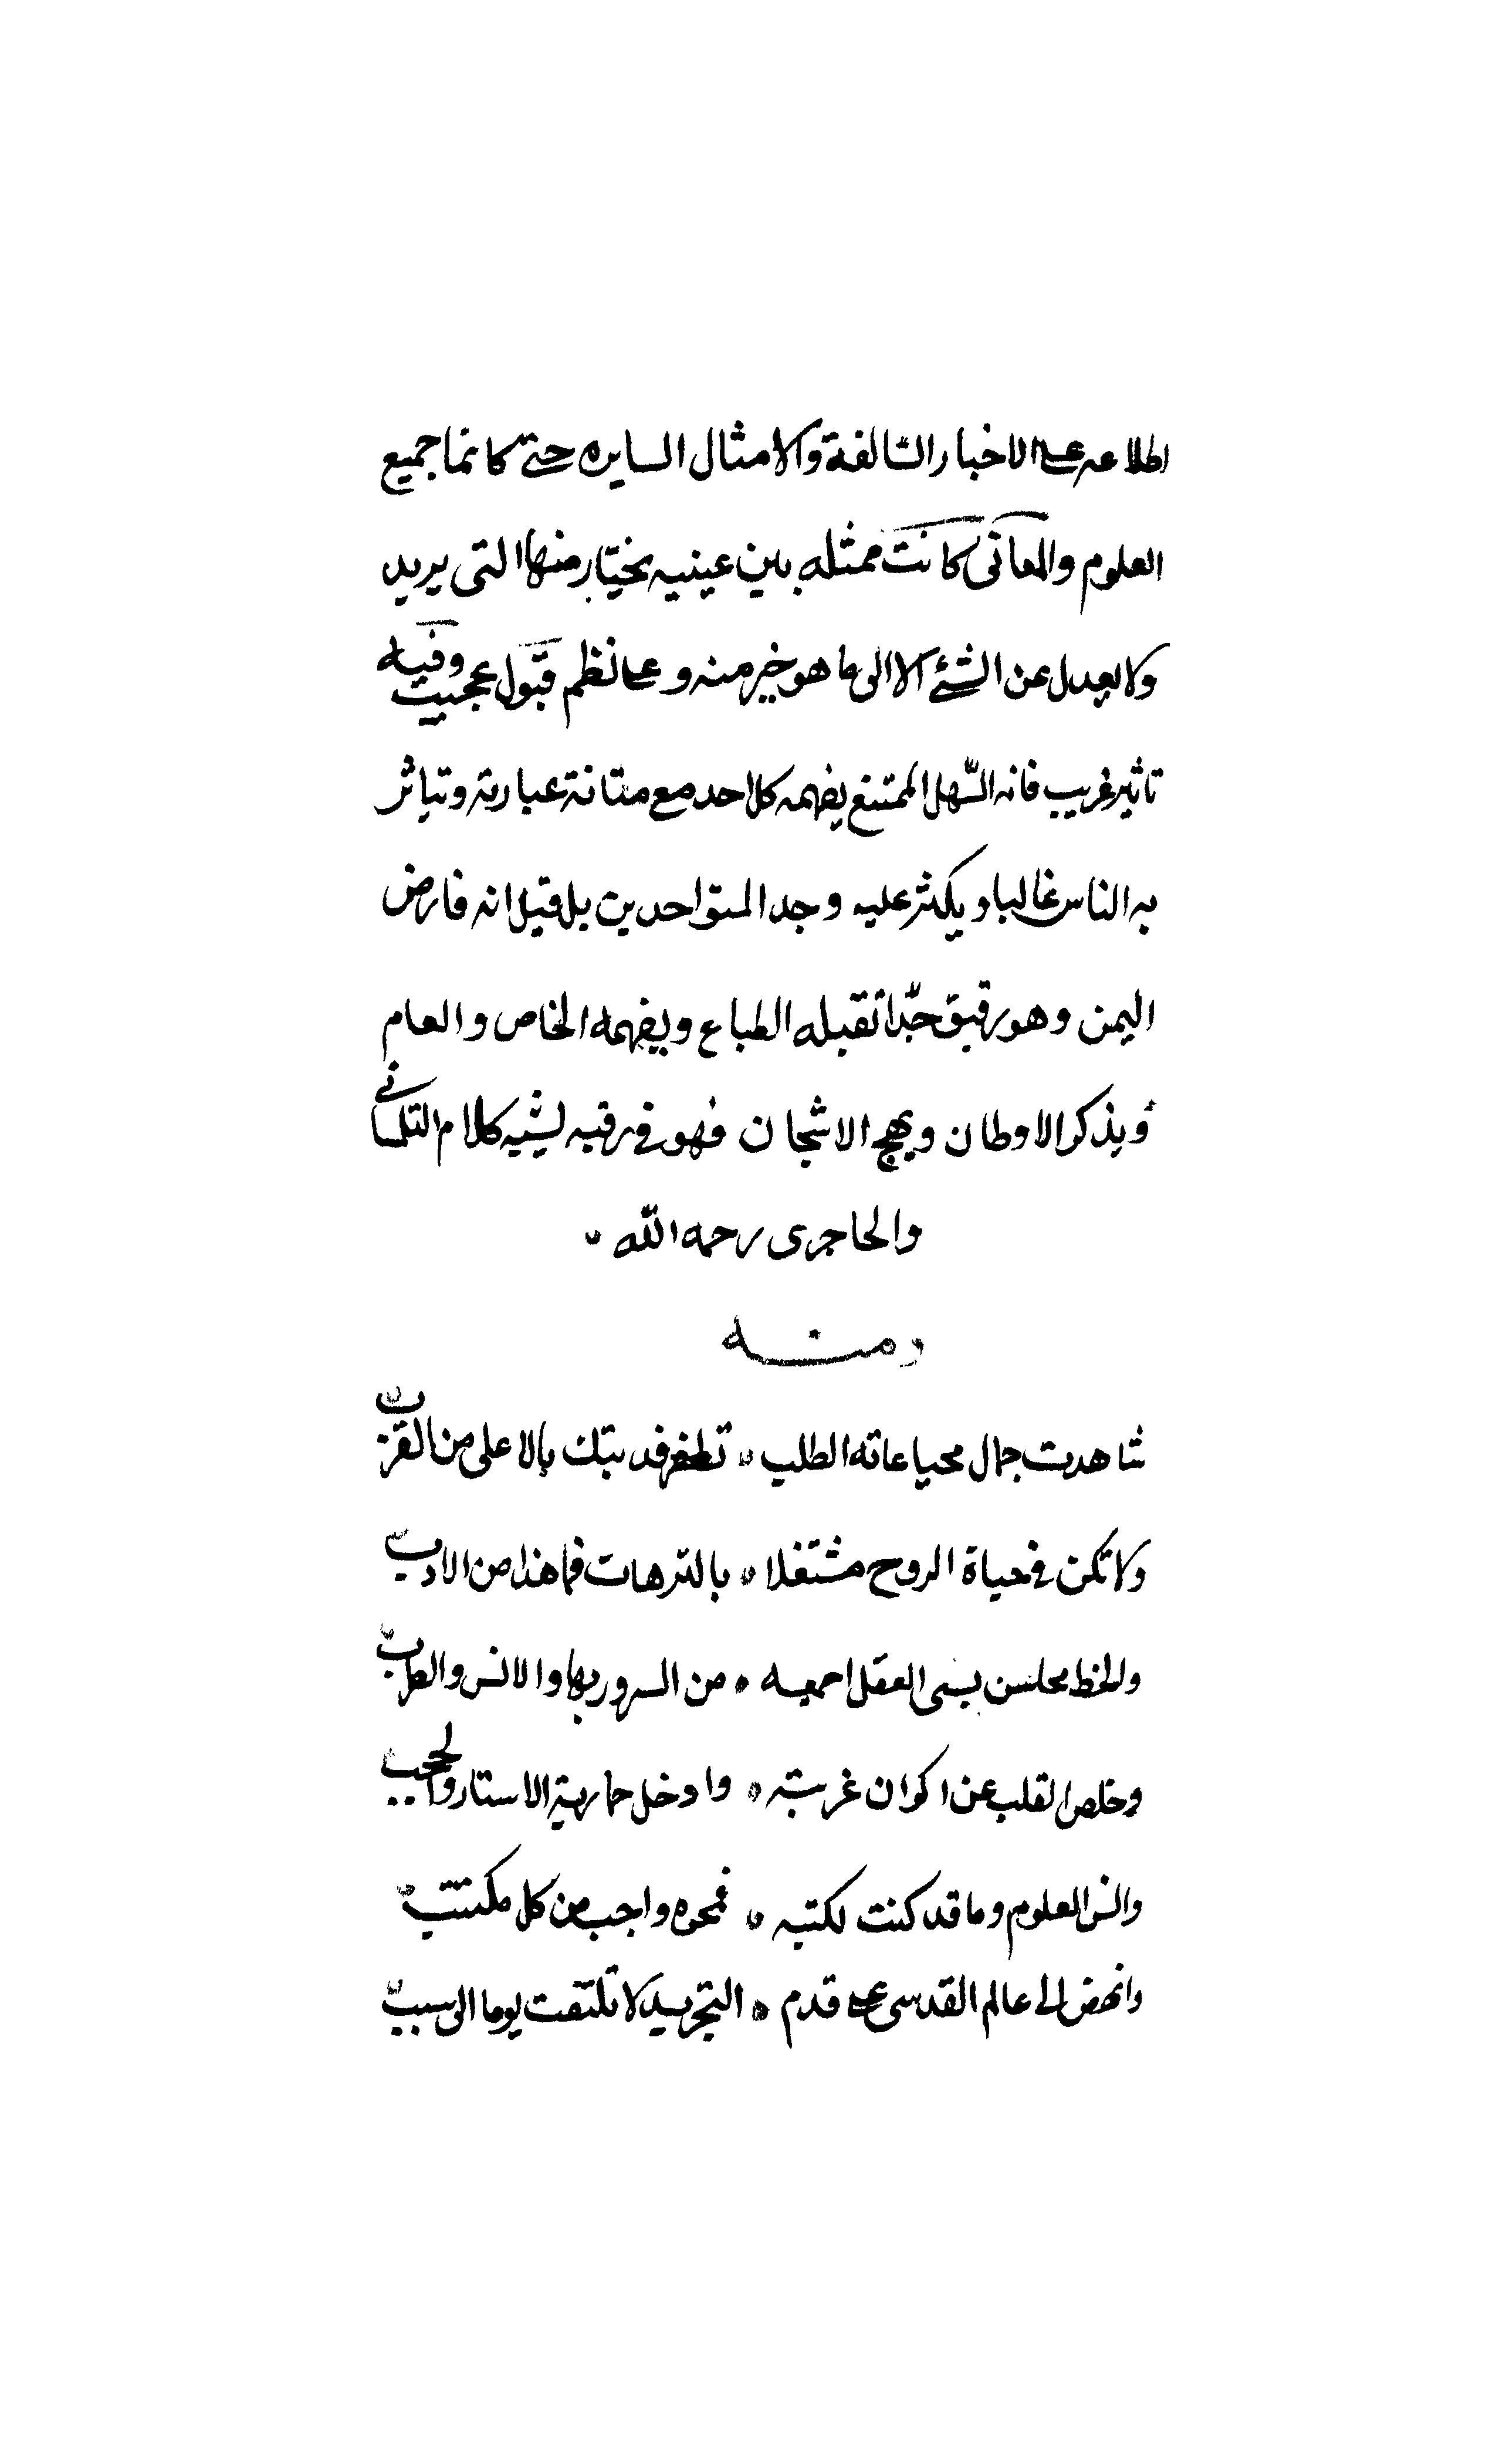 اطلاعه على الاخبار السّالفة والامثال السايره حتى كانما جميع
العلوم والمعانى كانت ممثله بين عينيه يختار منها التى يريد
ولا يعدل عن الشئ الا الى ما هو خير منه وعلى نظم قبول عجيب وفيه
تاثير غريب فانه السّهل الممتنع يفهمه كل احد مع متانة عبارته ويتاثر
به الناس غالبا ويكثر عليه وجد المتواجدين بل قيل انه فارض
اليمن وهو رقيق جدّا تقبله الطباع ويفهمه الخاص والعام
ويذكر الاوطان ويهيج الاشجان فهو فى رقيه يشبه كلام التلمسانى
والحاجرى رحمه الله
ومنه
شاهدت جمال محيا عاته الطلب تظفر فديتك بالاعلى من القرب
ولا تكن فى حياة الروح مشتغلا بالترهات فما هذا من الادب
والحظ محاسن يسبى العقل اجمعه من السرور بها والانس والطرب
وخلص القلب عن اكوان غربته وادخل حما ربة الاستار والحجب
وانس العلوم وما قد كنت تكتبه فمحوه واجب من كل مكتتب
وانهض الى عالم القدسى على قدم التجريد لا تلتفت يوما الى سبب